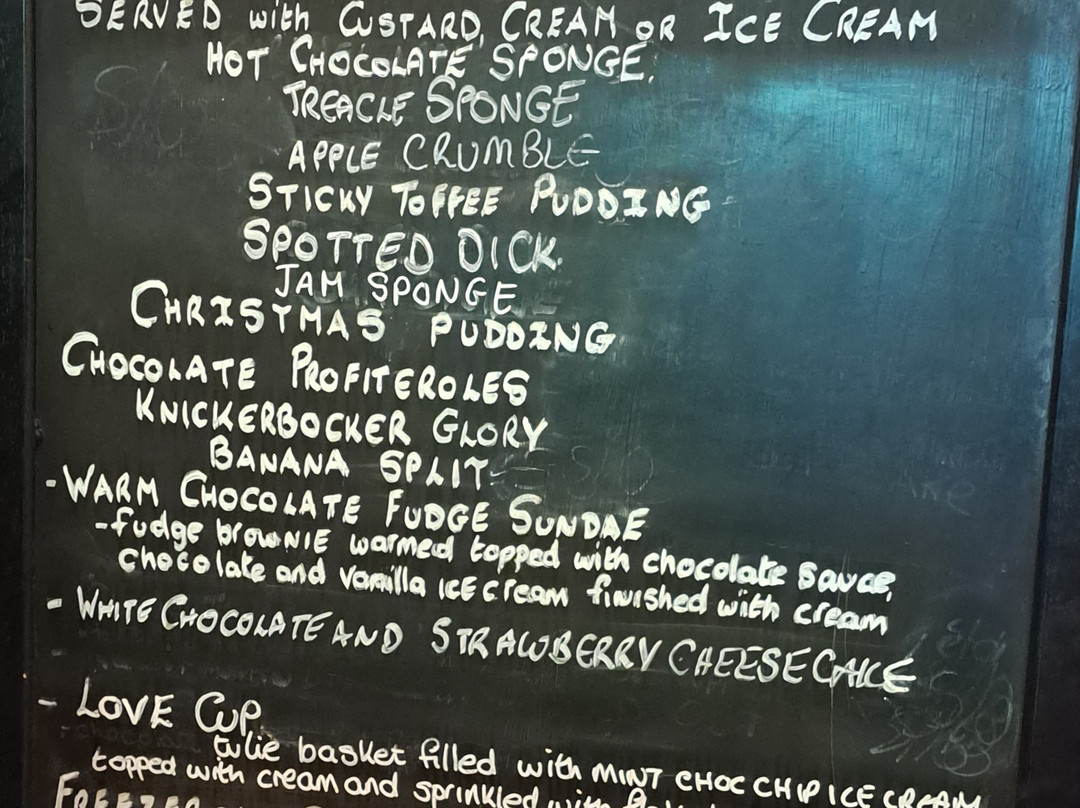 SERVED with CUSTARD, CREAM OR ICE CREAM
HOT CHOCOLATE SPONGE.
TREACLE SPONGE
APPLE CRUMBLE
STICKY TOFFEE PUDDING
SPOTTED DICK.
JAM SPONGE
CHRISTMAS PUDDING
CHOCOLATE PROFITEROLES
KNICKERBOCKER GLORY
BANANA SPLIT
- WARM CHOCOLATE FUDGE SUNDAE
- fudge brownIE warmed topped with chocolate sauce,
chocolate and vanilla ICE cream finished with cream
- WHITE CHOCOLATE AND STRAWBERRY CHEESECAKE
- LOVE CUP
tulie basket filled with MINT CHOC CHIP ICE CREAM
topped with cream and sprinkled with
FREEZER